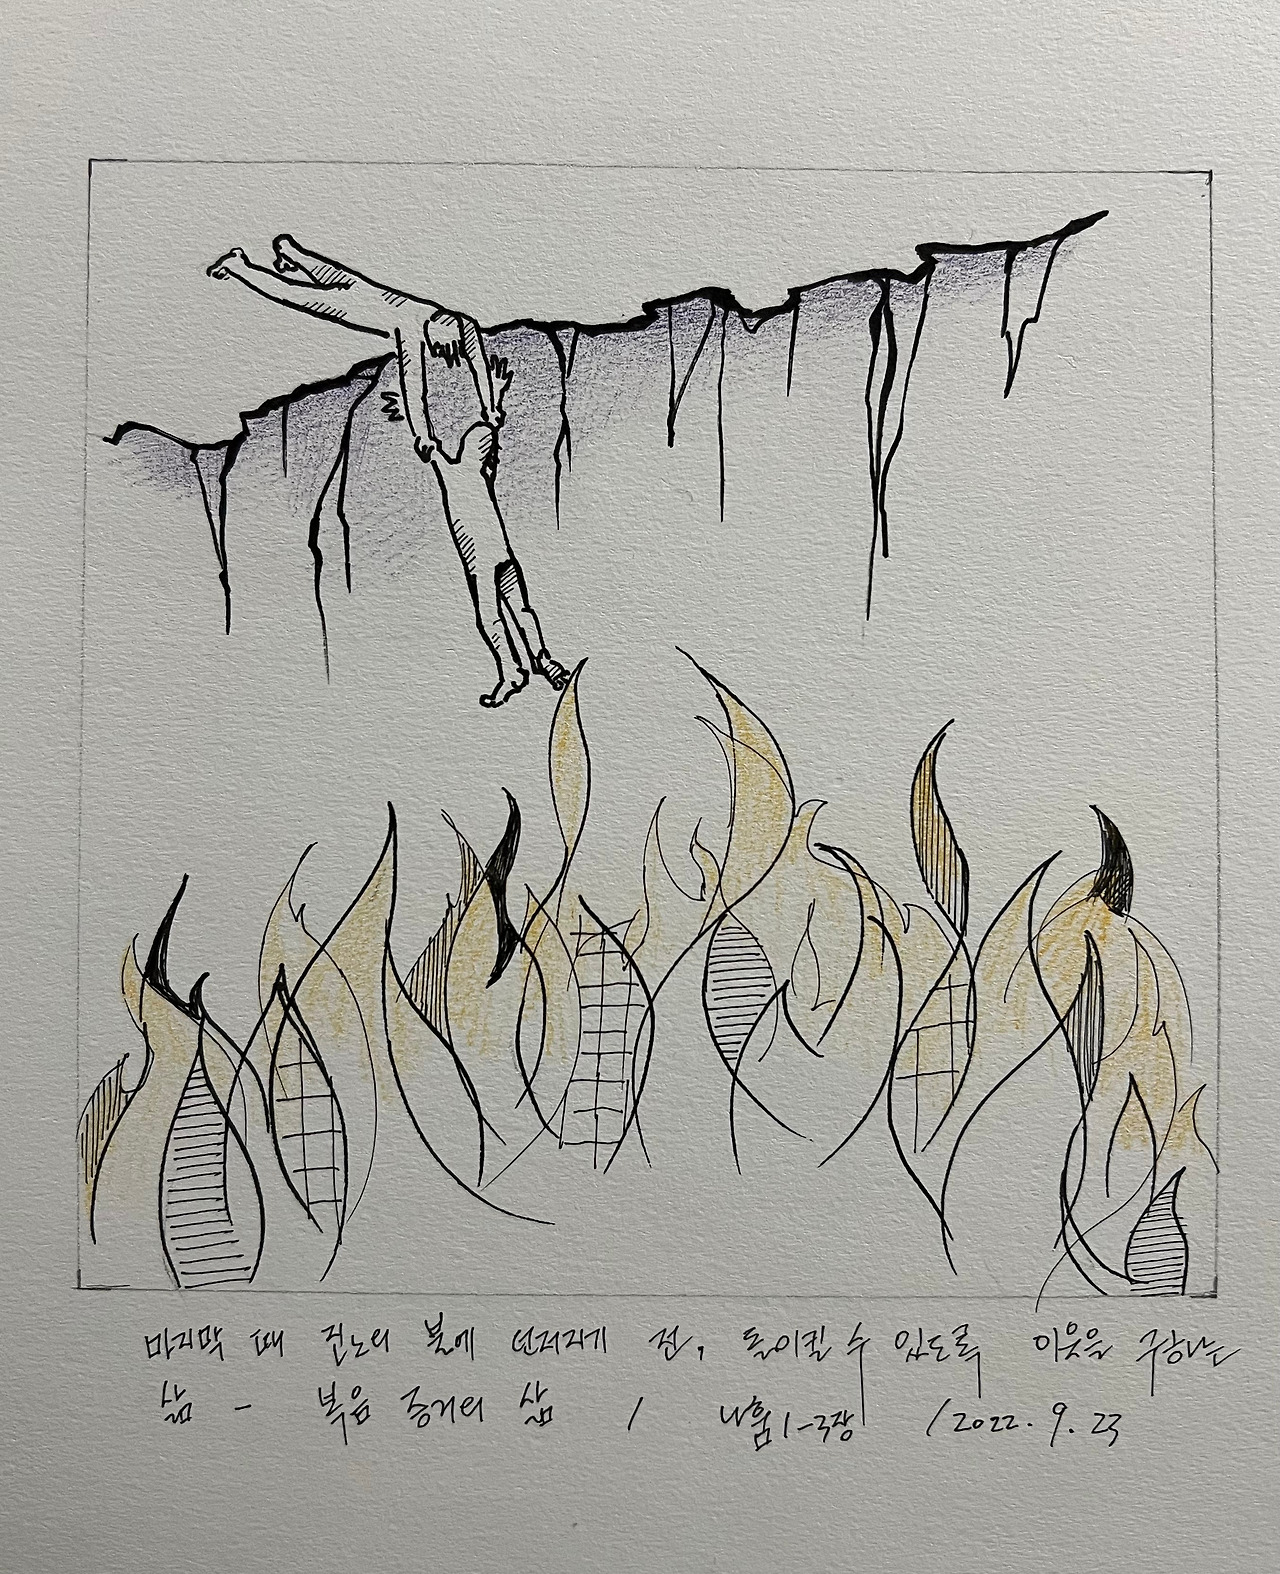 마지막 때 진노의 불에 던져지기 전, 돌이킬 수 있도록 이웃을 구하는
삶 - 복음 증거의 삶 / 나훔 1-3장 / 2022. 9. 23